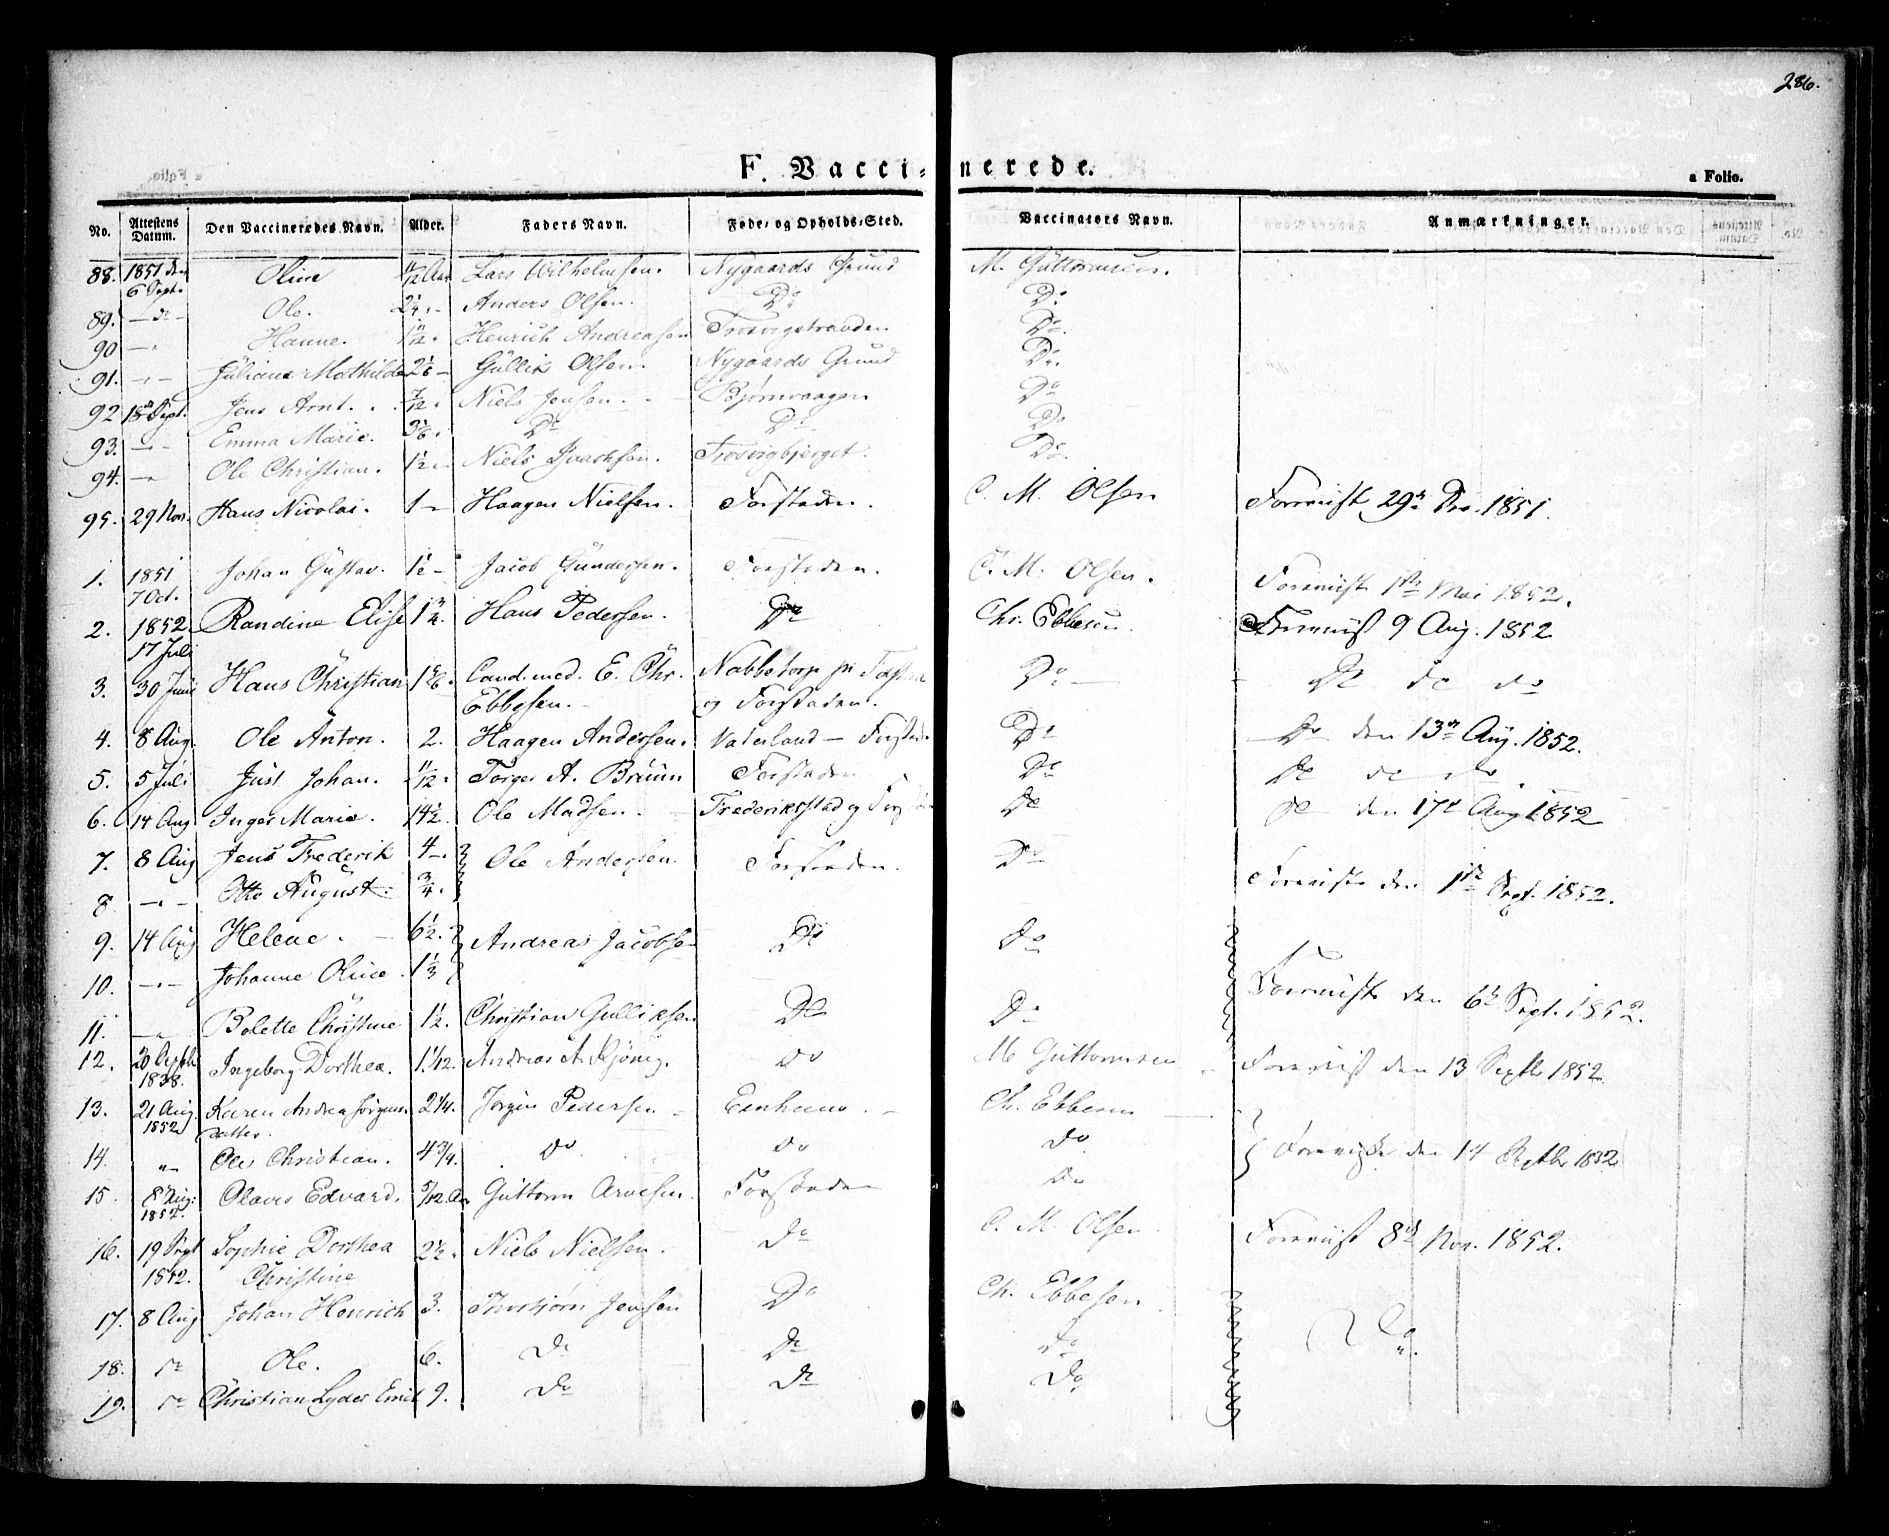 286.
F. Vaccinerede.
a Folio.
No. Attestens Datum. Den Vaccineredes Navn. Alder. Faders Navn. Føde- og Opholds-Sted. Vaccinators Navn. Anmærkninger.
88. 1851 den 6 Sept. Oline 11/12 Aar Lars Wilhelmsen. Nygaards Grund M. Guttormsen.
89. — do — Ole. 2 1/4 Anders Olsen. Do Do
90 — " Hanne. 1 11/12 Henrich Andreasen Trosvigstranden Do.
91. — " — Juliane Mathilde 2 1/6 — Gullik Olsen. Nygaards Grund Do.
92 18de Sept. Jens Arnt. 7/12 Niels Jensen. Bjørnvaagen Do
93. — " — Emma Marie. 3 1/6 Do Do Do
94. — " Ole Christian. 1 1/2 Niels Isaachsen. Trosvigbjerget. Do.
95. 29 Nov. Hans Nicolai. 1 — Haagen Nielsen. Forstaden. C. M. Olsen Foreviist 29de Dec. 1851.
1. 1851 7 Oct. Johan Gustav. 1 1/2 — Jacob Gundersen. Forstaden. C. M. Olsen. Foreviist 1ste Mai 1852.
2. 1852 17 Juli Randine Elise 1 3/4. Hans Pedersen. Do Chr. Ebbesen. Foreviist 9 Aug. 1852
3. 30 Juni Hans Christian 1 5/6. Cand. med. E. Chr. Nabbetorp pr Forstad Do — Do do do
Ebbesen. og Forstaden.
4. 8 Aug. Ole Anton. 2. Haagen Andersen. Vaterland — Forstad Do Do den 13de Aug. 1852.
5. 5 Juli Just Johan. 11/12. Torger A. Bruun Forstaden Do Do do do
6. 14 Aug Inger Marie. 14 1/2. Ole Madsen. Frederiksstad og Do do den 17de Aug 1852
7. 8 Aug Jens Frederik 4 —. Ole Andersen. Forstaden. Do
8. — " — Otto August. 3/4. Foreviist den 1ste Sept. 1852.
9. 14 Aug Helene. — 6 1/2. Andreas Jacobsen Do Do
10. — " — Johanne Oline. 1 1/3 Foreviist den 6te Sept. 1852.
11. — " Bolette Christine 1 1/2. Christian Gulliksen Do Do
12. 20 Septbr 1838. Ingeborg Dorthea. 1 1/12. Andreas A. Do M Guttormsen Foreviist den 13 Septbr 1852
13. 21 Aug. 1852 Karen Andrea Jørgens- 2 1/4. Jørgen Pedersen — Eenhuus. — Ch. Ebbesen —
datter.
14. " Ole Christian. 4 3/4. Do Do Do Foreviist den 14 Septbr 1852
15. 8 Aug: 1852. Olaves Edvard. 5/12 Aar Guttorm Arvesen. Forstaden Do
16. 19 Sept 1852. Sophie Dorthea 2 1/2. Niels Nielsen. Do C. M. Olsen. Foreviist 8de Nov. 1852.
Christine
17. 8 Aug Johan Henrich 3. Thorbjørn Jensen Do Ch. Ebbesen
18. do Ole. 6. Do Do Do Do.
19. do Christian Lyder Emil 9. Do Do Do